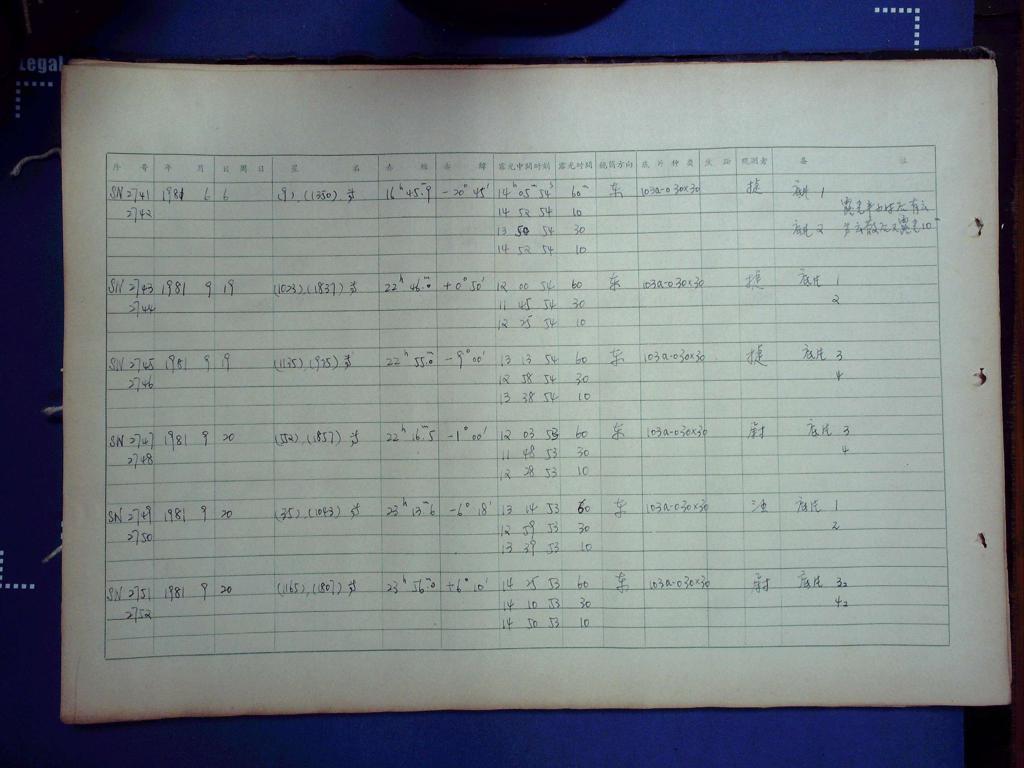 Legal
序 号 年 月 日 周 日 星 名 赤 经 赤 纬 露光中间时刻 露光时间 镜筒方向 底 片 种 类 观测者 备 註
SN 2741 1981 6 6 (9), (1350) 16h 45m.9 -20° 45' 14h 05m 54s 60m 东 103a-0 30×30 捷 底片 1
2742 14 52 54 10
13 50 54 30 底片 2 多云散后又露光10m
14 52 54 10
SN 2743 1981 9 19 (1023), (1837) 22h 46m.0 +0° 50' 12 00 54 60 东 103a-0 30×30 捷 底片 1
2744 11 45 54 30 2
12 25 54 10
SN 2745 1981 9 19 (1135), (925) 22h 55m.0 -9° 00' 13 13 54 60 东 103a-0 30×30 捷 底片 3
2746 12 58 54 30 4
13 38 54 10
SN 2747 1981 9 20 (552), (1857) 22h 16m.5 -1° 00' 12 03 53 60 东 103a-0 30×30 底片 3
2748 11 48 53 30 4
12 28 53 10
SN 2749 1981 9 20 (35), (1043) 23h 13m.6 -6° 18' 13 14 53 60 东 103a-0 30×30 底片 1
2750 12 59 53 30 2
13 39 53 10
SN 2751 1981 9 20 (1165), (1807) 23h 56m.0 +6° 10' 14 25 53 60 东 103a-0 30×30 底片 32
2752 14 10 53 30 42
14 50 53 10